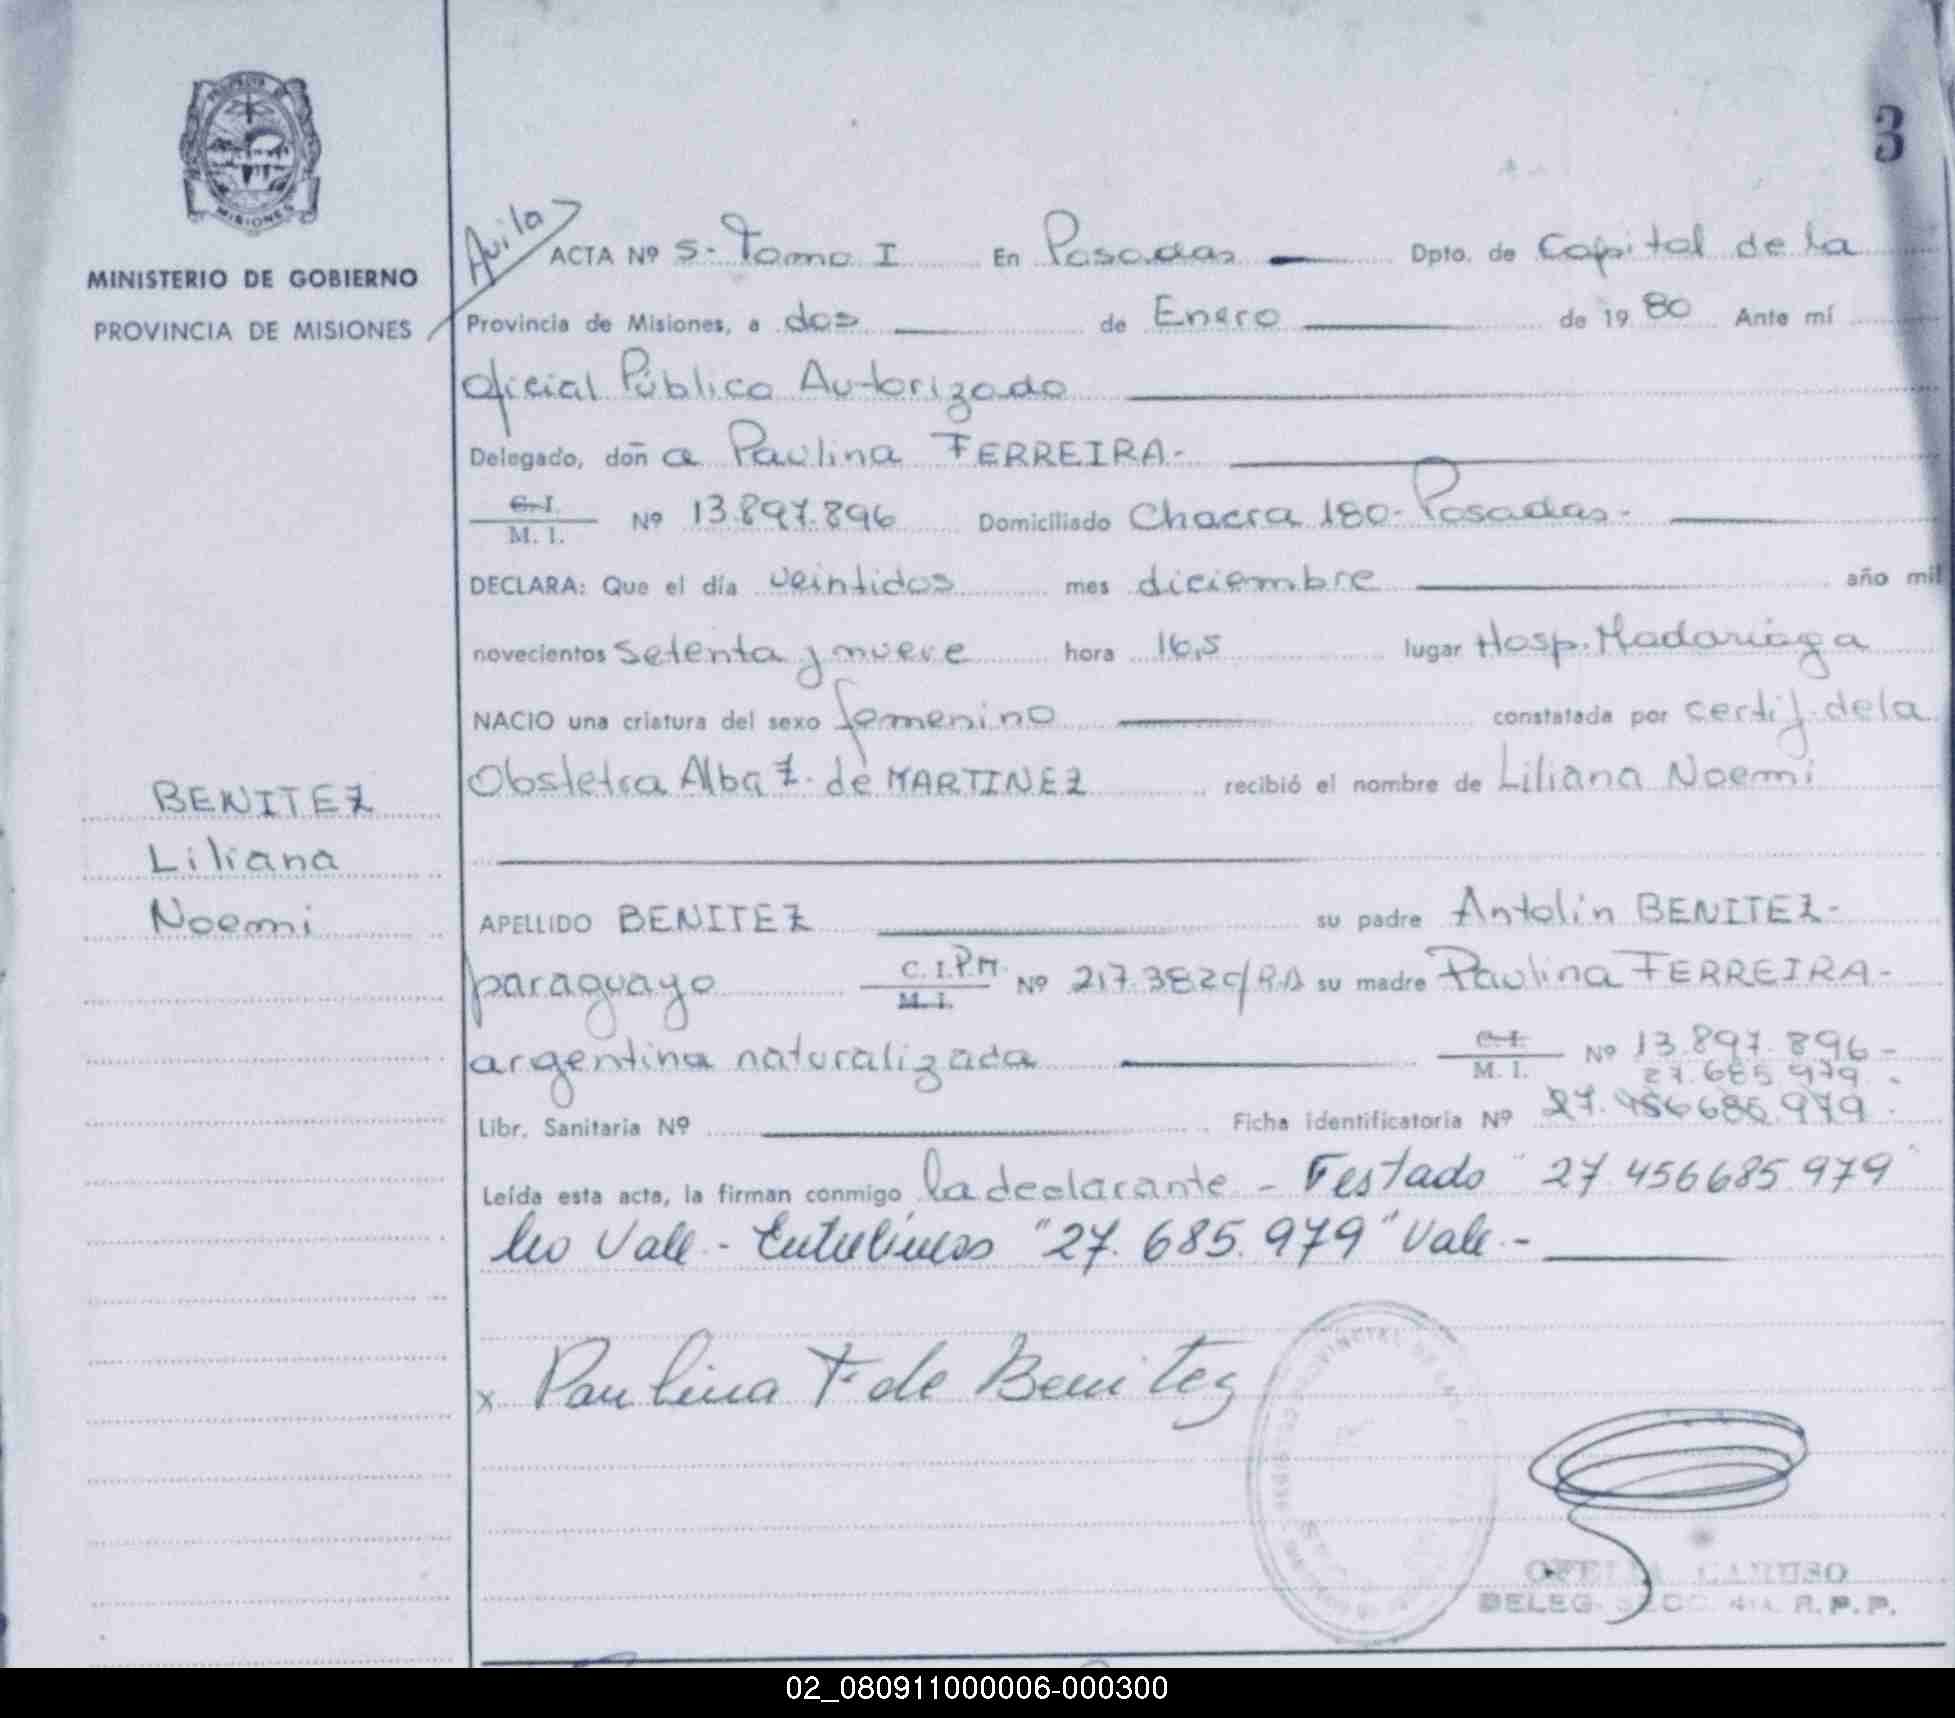 3
MISIONES
MINISTERIO DE GOBIERNO
PROVINCIA DE MISIONES
BENITEZ
Liliana
Noemi
Avila
ACTA Nº 5- Tomo I En Posadas Dpto. de Capital de la
Provincia de Misiones, a dos de Enero de 1980 Ante mí
Oficial Público Autorizado
Delegado, doña Paulina FERREIRA.-
C. I.
M. I. Nº 13.897.896 Domiciliado Chacra 180- Posadas-
DECLARA: Que el día veintidos mes diciembre año mil
novecientos setenta y nueve hora 16,5 lugar Hosp. Madariaga
NACIO una criatura del sexo femenino constatada por certif. de la
Obstetra Alba Z. de MARTINEZ recibió el nombre de Liliana Noemi
APELLIDO BENITEZ su padre Antolin BENITEZ-
paraguayo C. I. P.M. Nº 217.382 su madre Paulina FERREIRA-
M. I.
argentina naturalizada C. I. Nº 13.897.896-
M. I. 27.685.979.
Libr. Sanitaria Nº Ficha identificatoria Nº 27.456685.979.
Leída esta acta, la firman conmigo la declarante - Testado "27.456685.979"
No Vale - Entrelineas "27.685.979" Vale.-
x Paulina F. de Benitez
OFELIA CARUSO
DELEG. SECC. 4ta. R.P.P.
02_080911000006-000300